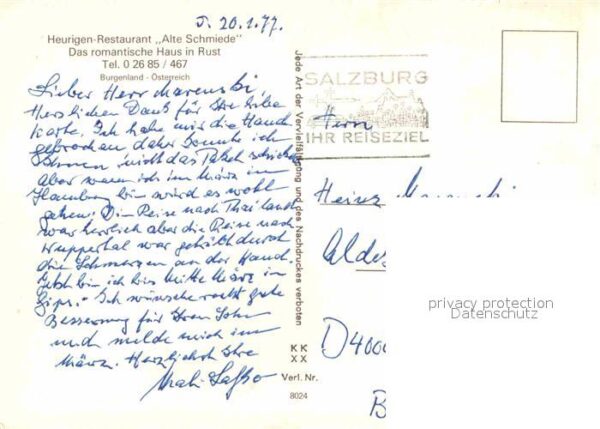 J. 20.1.77.
Heurigen-Restaurant „Alte Schmiede"
Das romantische Haus in Rust
Tel. 0 26 85 / 467
Burgenland - Österreich
Lieber Herr
Herzlichen Dank für Ihre liebe
Karte. Ich habe mir die Hand
gebrochen daher konnte ich
Ihnen nicht das Paket schicken
aber wenn ich im März in
Hamburg bin wird es wohl
gehen. Die Reise nach Thailand
war herrlich aber die Reise nach
Wuppertal war getrübt durch
die Schmerzen an der Hand.
Jetzt bin ich bis Mitte März in
Gips. Ich wünsche recht gute
Besserung für Ihren Sohn
und melde mich im
März. Herzlichst Ihre
Jede Art der Vervielfältigung und des Nachdruckes verboten
KK
XX
Verl. Nr.
8024
SALZBURG
IHR REISEZIEL
Herrn
Heinz
D 4000
privacy protection
Datenschutz